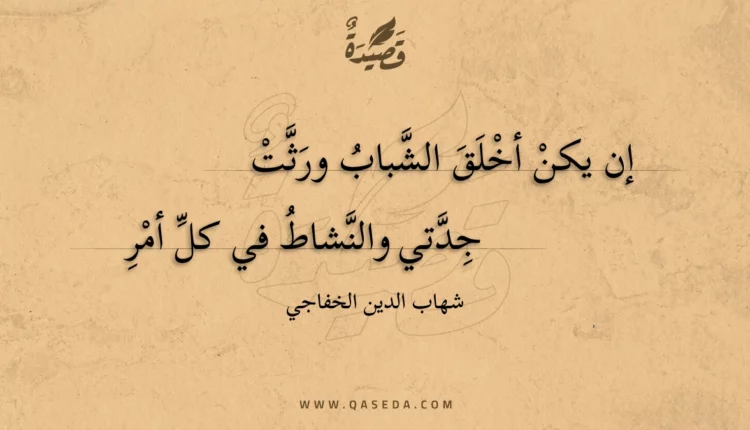 قَصِيْدَةٌ
إن يكنْ أخْلَقَ الشَّبابُ ورَثَّتْ
جِدَّتي والنَّشاطُ في كلِّ أمْرِ
شهاب الدين الخفاجي
WWW.QASEDA.COM